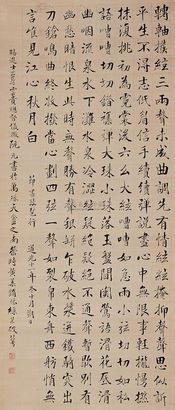 轉軸撥絃三兩聲未成曲調先有情絃絃掩抑聲聲思似訴
平生不得志低眉信手續續彈說盡心中無限事輕攏慢撚
抹復挑初為霓裳後六么大絃嘈嘈如急雨小絃切切如私
語嘈嘈切切錯雜彈大珠小珠落玉盤間關鶯語花底滑
幽咽流泉水下灘水泉冷澀絃凝絕凝絕不通聲暫歇別有
幽愁暗恨生此時無聲勝有聲銀缾乍破水漿迸鐵騎突出
刀槍鳴曲終收撥當心畫四絃一聲如裂帛東舟西舫悄無
言唯見江心秋月白
節書琵琶行 道光十二年冬十月朔日
雲貴總督儀徵阮元書於